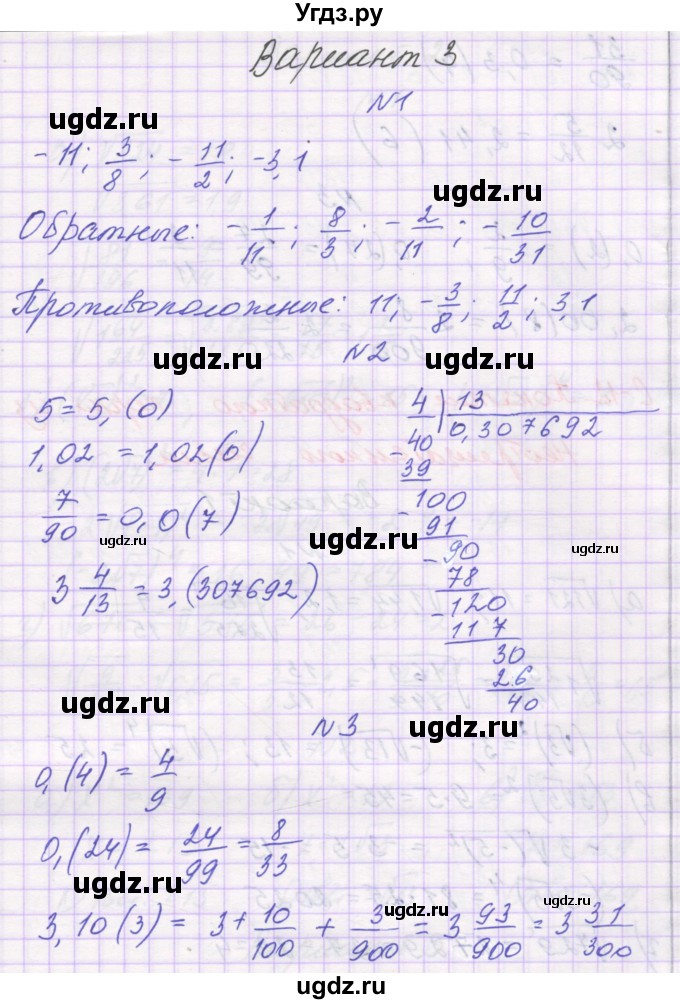 Угдз.ру
Вариант 3
N1
-11; 3/8; -11/2; -3,1
ugdz.ru
Обратные: -1/11; 8/3; -2/11; -10/31
Противоположные: 11, -3/8; 11/2; 3,1
ugdz.ru ugdz.ru
N2
5 = 5,(0)
1,02 = 1,02(0)
7/90 = 0,0(7)
3 4/13 = 3,(307692)
4 | 13
40 0,307692
39
100
91
90
78
120
117
30
26
40
ugdz.ru ugdz.ru
ugdz.ru
ugdz.ru ugdz.ru
N3
0,(4) = 4/9
0,(24) = 24/99 = 8/33
ugdz.ru ugdz.ru ugdz.ru
3,10(3) = 3 + 10/100 + 3/900 = 3 93/900 = 3 31/300
ugdz.ru ugdz.ru